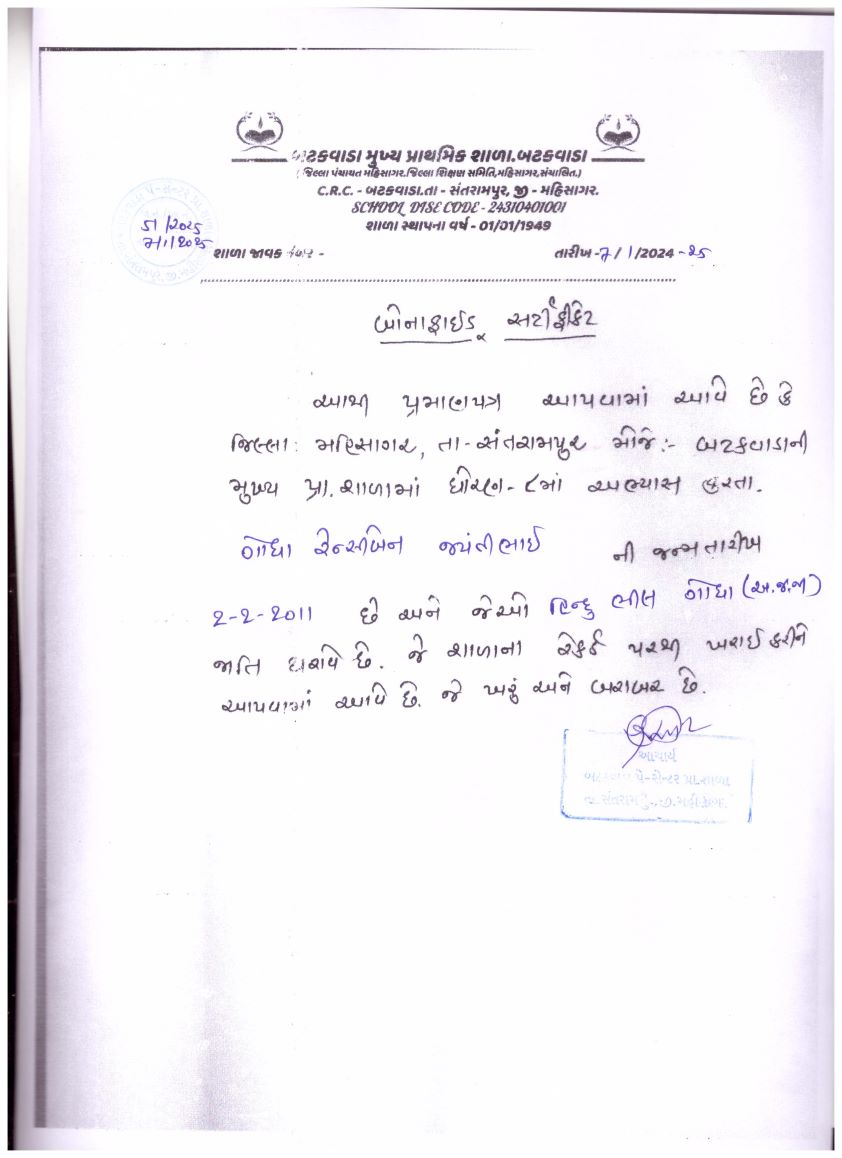 બટકવાડા મુખ્ય પ્રાથમિક શાળા.બટકવાડા
( જિલ્લા પંચાયત મહિસાગર.જિલ્લા શિક્ષણ સમિતિ,મહિસાગર,સંચાલિત.)
C.R.C. - બટકવાડા.તા - સંતરામપુર, જી - મહિસાગર.
SCHOOL DISE CODE - 24310401001
શાળા સ્થાપના વર્ષ - 01/01/1949
51/2025
7/1/2025
શાળા જાવક નંબર -
તારીખ -7/1/2024-25
બોનાફાઈડ સર્ટીફીકેટ
આથી પ્રમાણપત્ર આપવામાં આવે છે કે
જિલ્લા: મહિસાગર, તા-સંતરામપુર મોજે:- બટકવાડાની
મુખ્ય પ્રા.શાળામાં ધોરણ-૮માં અભ્યાસ કરતા.
જયંતીભાઈ ની જન્મતારીખ
2-2-2011 છે અને જેઓ હિન્દુ ભીલ (અ.જ.જા)
જાતિ ધરાવે છે. જે શાળાના રેકર્ડ પરથી ખરાઈ કરીને
આપવામાં આવે છે. જે ખરું અને બરાબર છે.
આચાર્ય
બટકવાડા પે-સેન્ટર પ્રા.શાળા
તા.સંતરામપુ